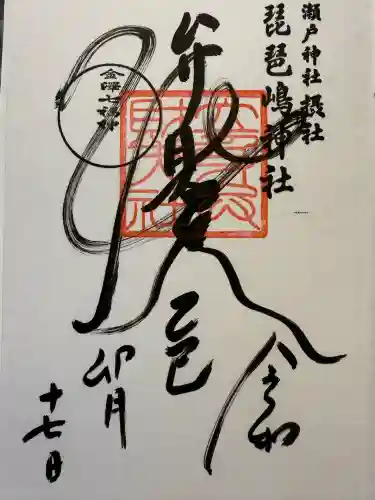 瀬戸神社 摂社
琵琶嶋神社
弁財天
金澤七福神
令和
乙巳
卯月
十七日